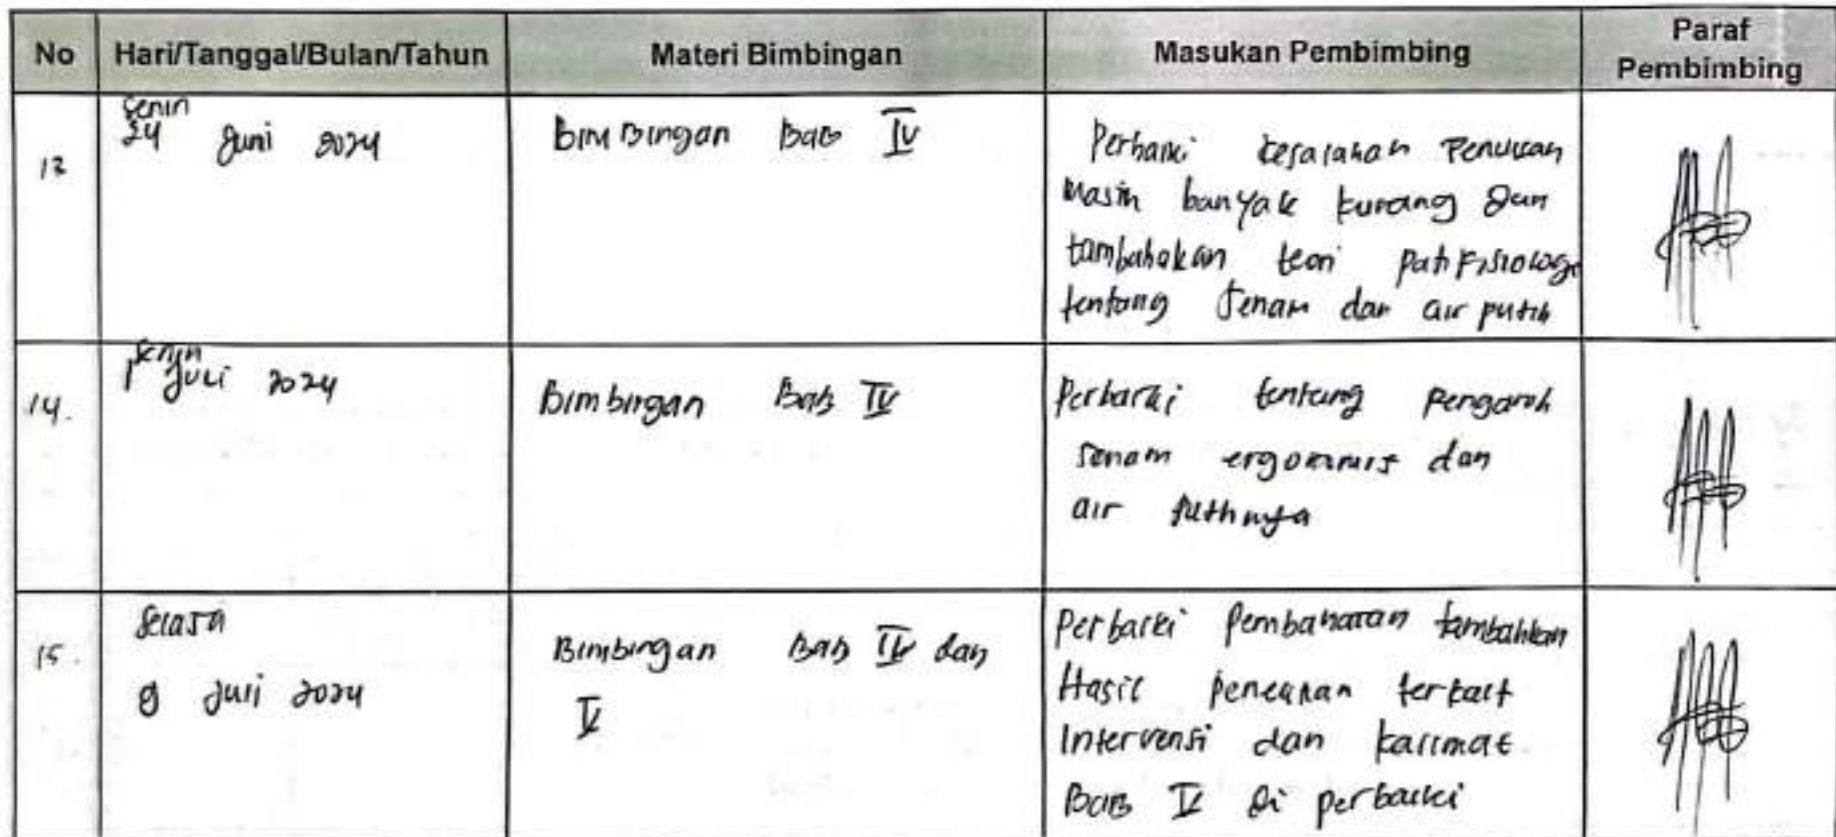 No Hari/Tanggal/Bulan/Tahun Materi Bimbingan Masukan Pembimbing Paraf Pembimbing
13
Senin
24 Juni 2024
Bimbingan Bab IV
Perbaiki kesalahan Penulisan
Masih banyak kurang dan
tambahakan teori patifisiologi
tentang Senam dan air putih
14.
Senin
1 Juli 2024
Bimbingan Bab IV
Perbaiki tentang pengaruh
senam ergonomis dan
air putihnya
15.
Selasa
9 Juli 2024
Bimbingan Bab IV dan
V
Perbaiki Pembahasan tambahkan
Hasil penelitian terkait
Intervensi dan kalimat
Bab V di perbaiki